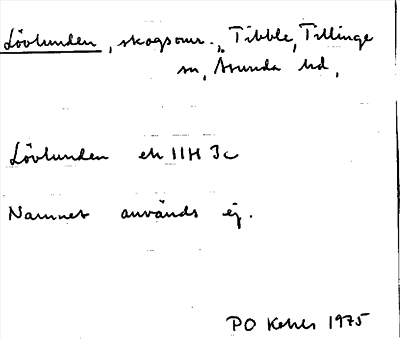 Lövlunden, skogsomr., Tibble, Tillinge
sn, Åsunda hd,
Lövlunden ek 11H 3c
Namnet används ej.
PO 1975